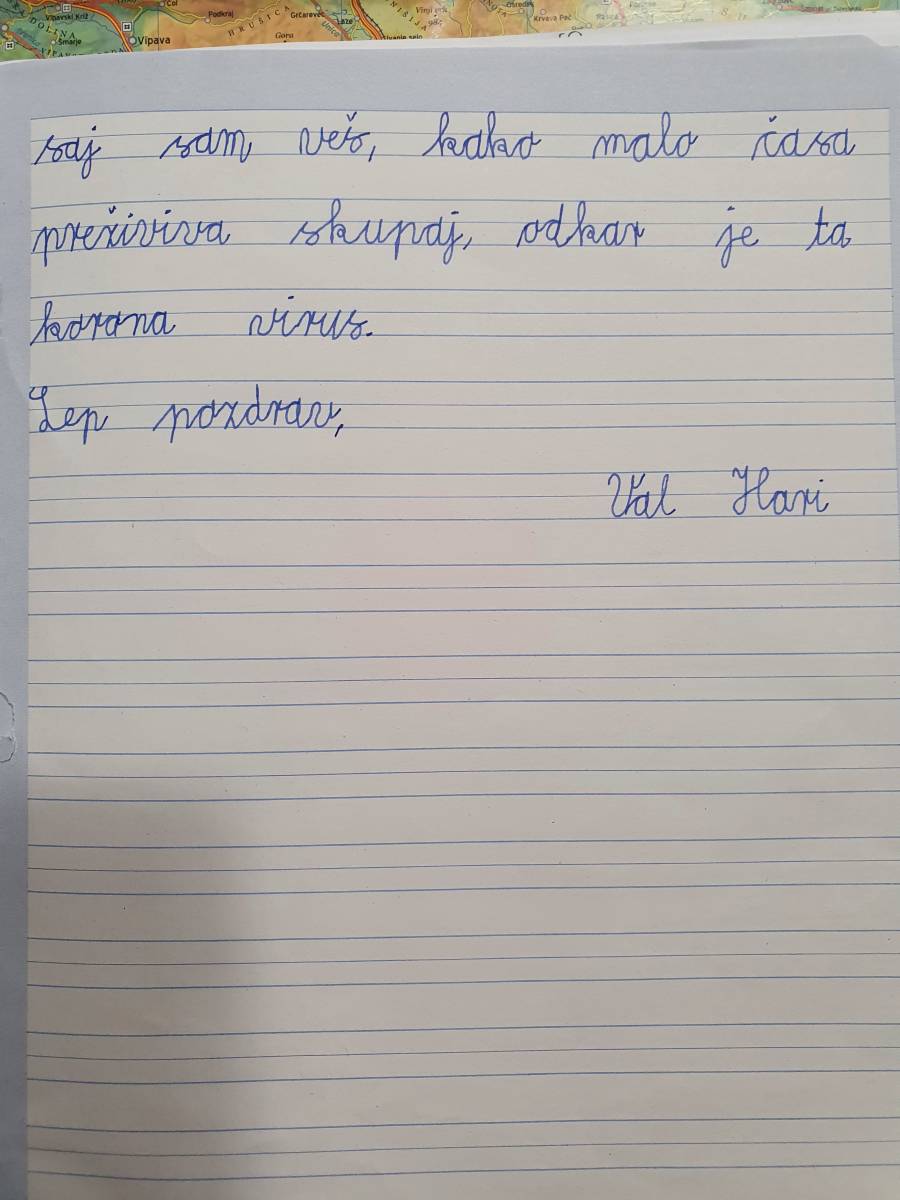 Col
Podkraj
Grčarevec
Laze
Vipavski Križ
Šmarje
Vipava
HRUŠICA
Gora
DOLINA
Krvava Peč
saj sam veš, kako malo časa
preživiva skupaj, odkar je ta
korona virus.
Lep pozdrav,
Val Hari